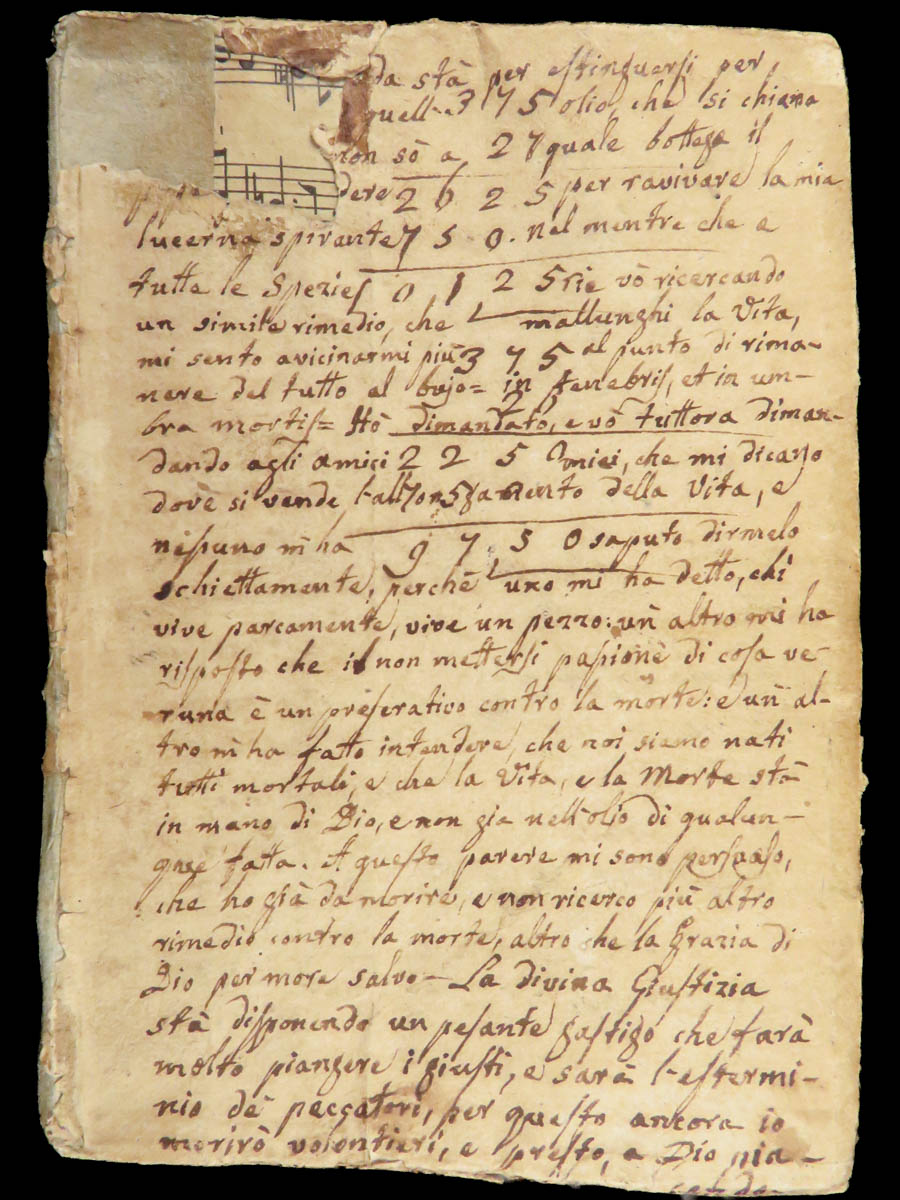 da stà per estinguersi per
quell 3 7 5 olio, che si chiama
non sò a 2 7 quale bottega il
dere 2 6 2 5 per ravivare la mia
lucerna spirante 7 5 0. nel mentre che a
tutte le Spezie 1 0 1 2 5 rie vò ricercando
un simile rimedio, che mallunghi la Vita,
mi sento avicinarmi più 3 7 5 al punto di rima-
nere del tutto al bujo= in tenebris, et in um-
bra mortis= Hò dimandato, e vò tuttora diman-
dando agli amici 2 2 5 0 miei, che mi dicano
dovè si vende l'all 7 on 5 gamento della Vita, e
nesuno m'ha 9 7 5 0 saputo dirmelo
schiettamente, perchè uno mi ha detto, chi
vive parcamente, vive un pezzo: un altro mi ha
risposto che il non mettersi pasione di cosa ve-
runa è un preserativo contro la morte: e un al-
tro m'ha fatto intendere, che noi siamo nati
tutti mortali, e che la Vita, e la Morte stà
in mano di Dio, e non gia nell'olio di qualun-
que fatta. A questo parere mi sono persuaso,
che ho già da morire, e non ricerco più altro
rimedio contro la morte, altro che la Grazia di
Dio per more salvo- La divina Giustizia
stà disponendo un pesante gastigo che farà
molto piangere i giusti, e sarà l'estermi-
nio de peccatori, per questo ancora io
morirò volontieri, e presto, a Dio pia-